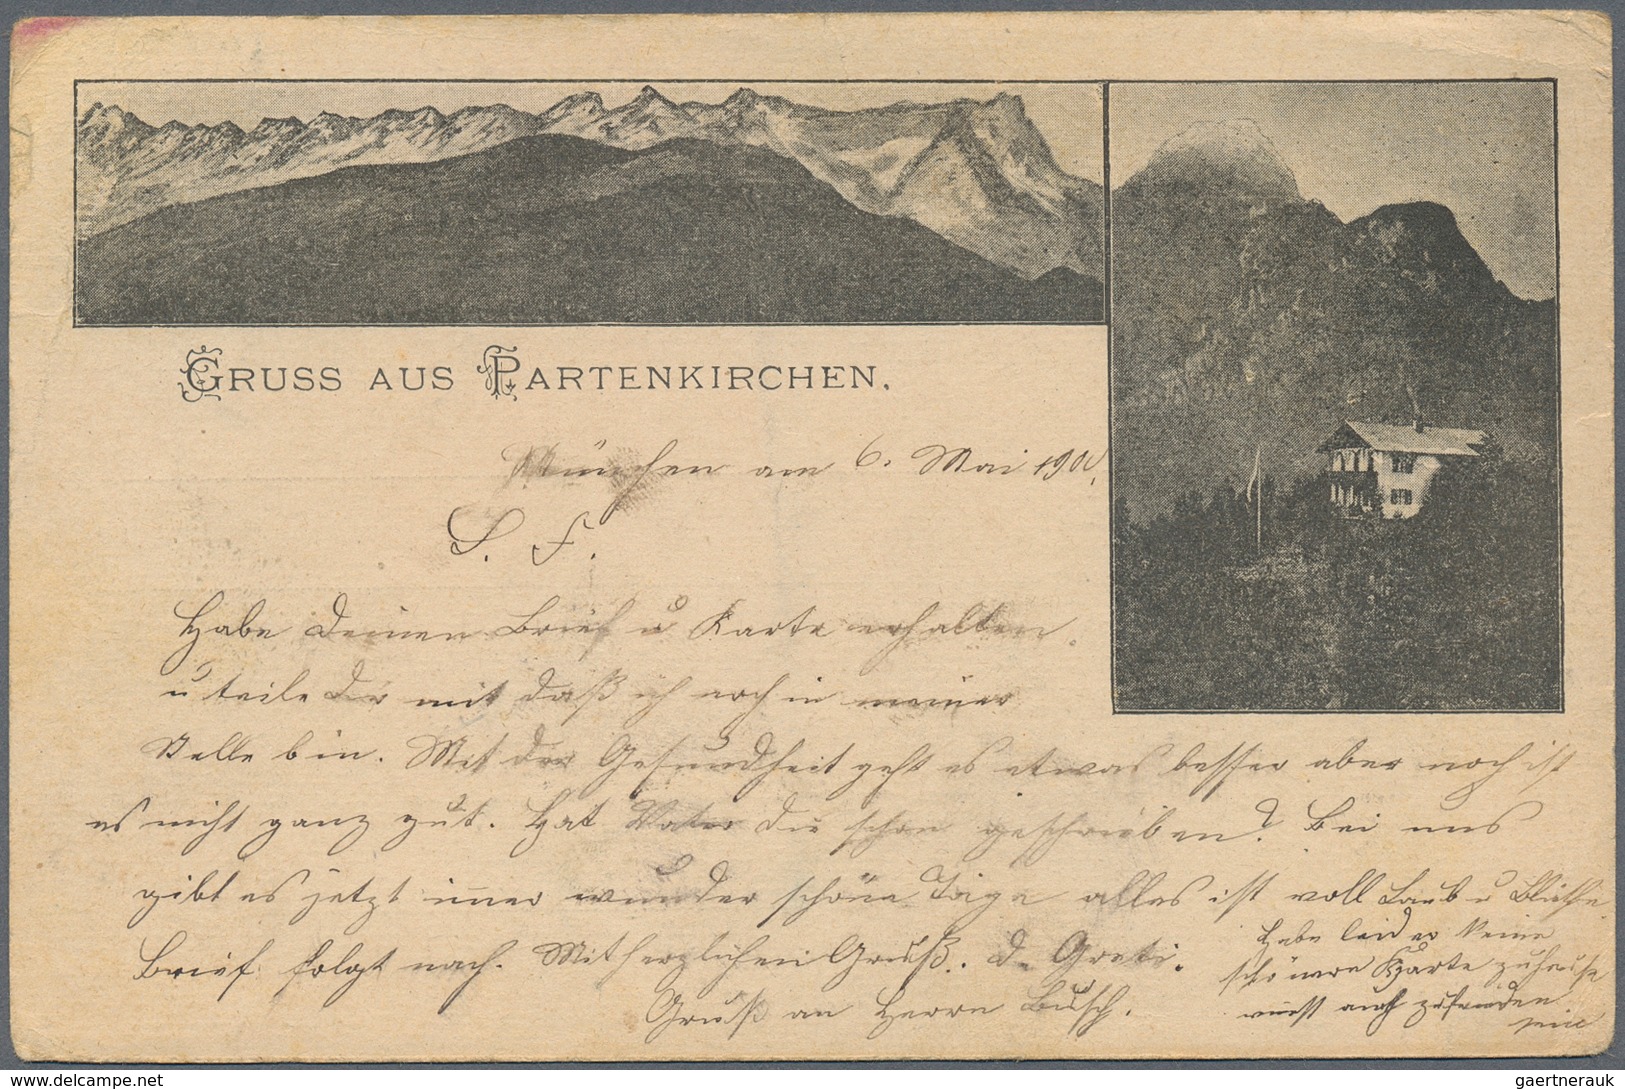 GRUSS AUS PARTENKIRCHEN.
München am 6. Mai 1900.
L. F.
Habe Deinen Brief u Karte erhalten
u teile Dir mit daß ich noch in meiner
Stelle bin. Mit der Gesundheit geht es etwas besser aber noch ist
es nicht ganz gut. Hat Vater Dir schon geschrieben? Bei uns
gibt es jetzt im̅er wunder schöne Tage alles ist voll Laub u Blüthe
Brief folgt nach. Mit herzlichen Gruß. d. Greti.
Gruß an Herrn Busch.
Habe leider keine
schönere Karte zuhause
wirst auch zufrieden
sein
© www.delcampe.net
gaertnerauk